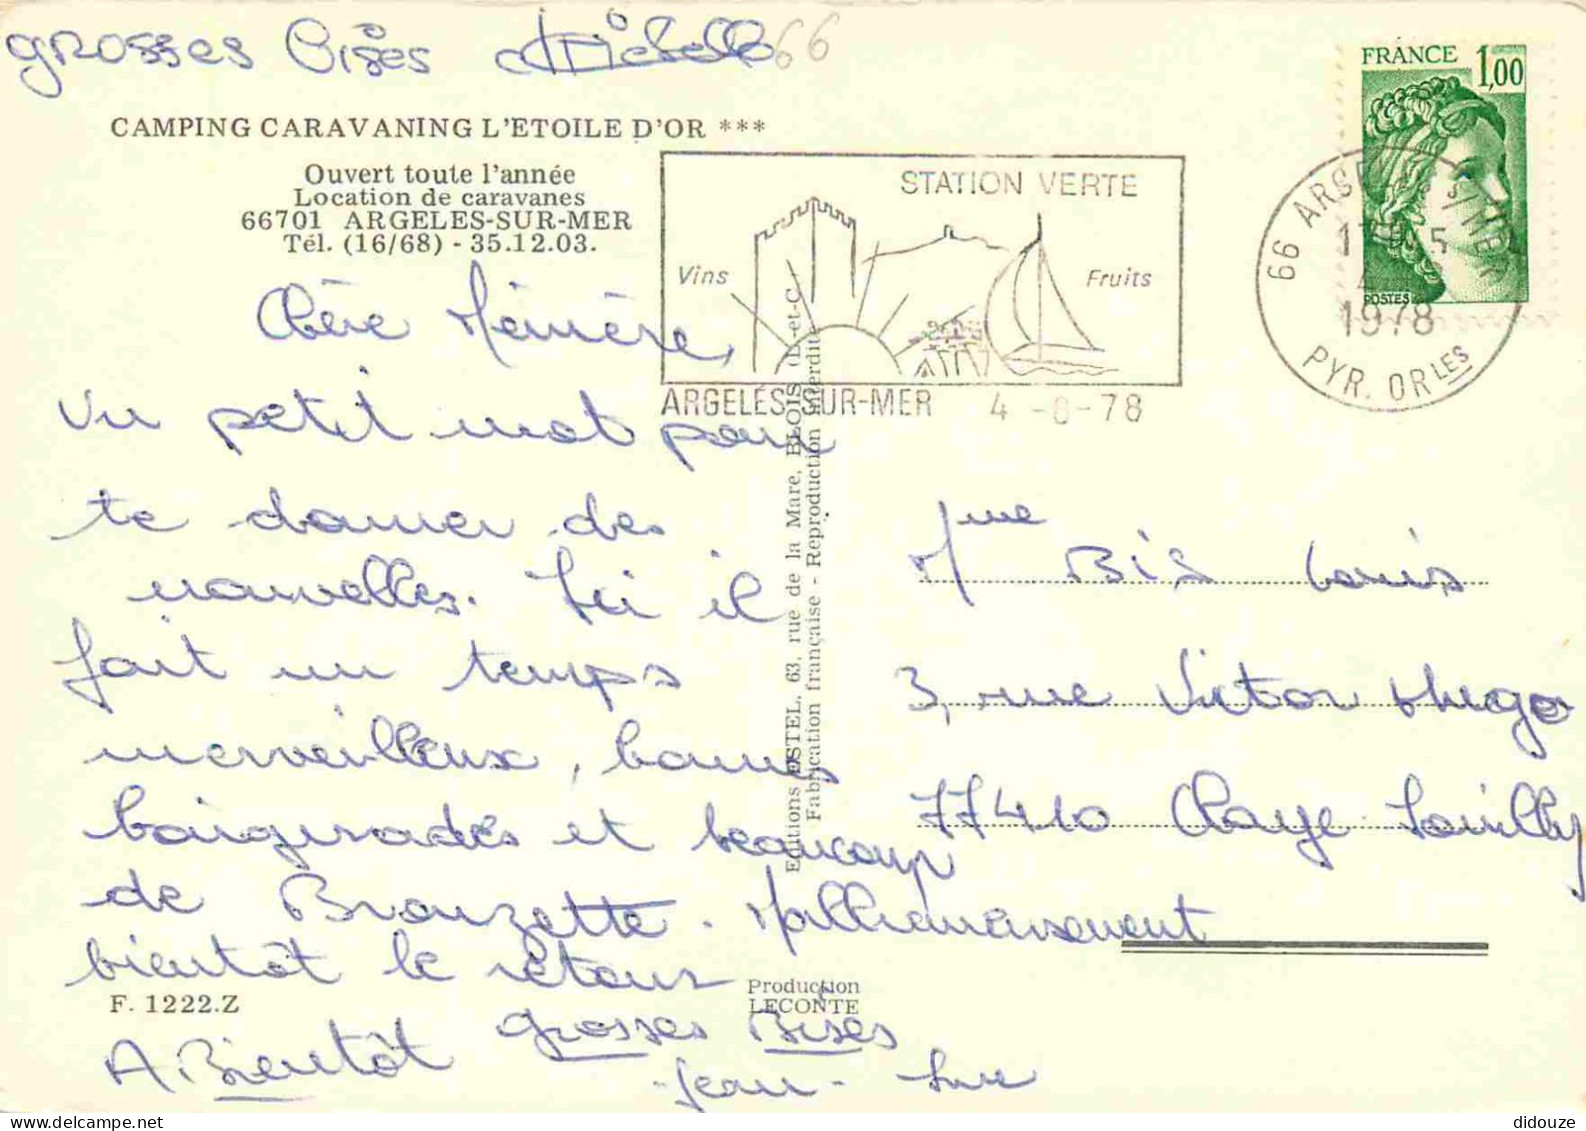 grosses Bises Michelle 66
CAMPING CARAVANING L'ETOILE D'OR ***
Ouvert toute l'année
Location de caravanes
66701 ARGELES-SUR-MER
Tél. (16/68) - 35.12.03.
FRANCE 1,00
POSTES
STATION VERTE
Vins
Fruits
ARGELÈS-SUR-MER 4 -8-78
66 ARGELES S/MER
4
1978
PYR. ORLES
Chère Mémère,
Un petit mot pour
te donner des
nouvelles. Ici il
fait un temps
merveilleux, bonnes
baignades et beaucoup
de Bronzette. Malheureusement
bientôt le retour
grosses Bises
A Bientôt
Jean-Luc
F. 1222.Z
Editions ESTEL, 63, rue de la Mare, BLOIS (L-et-C.)
Fabrication française - Reproduction interdite
Production
LECONTE
Mme Bis Louis
3, rue Victor Hugo
77410 Claye-Souilly
didouze